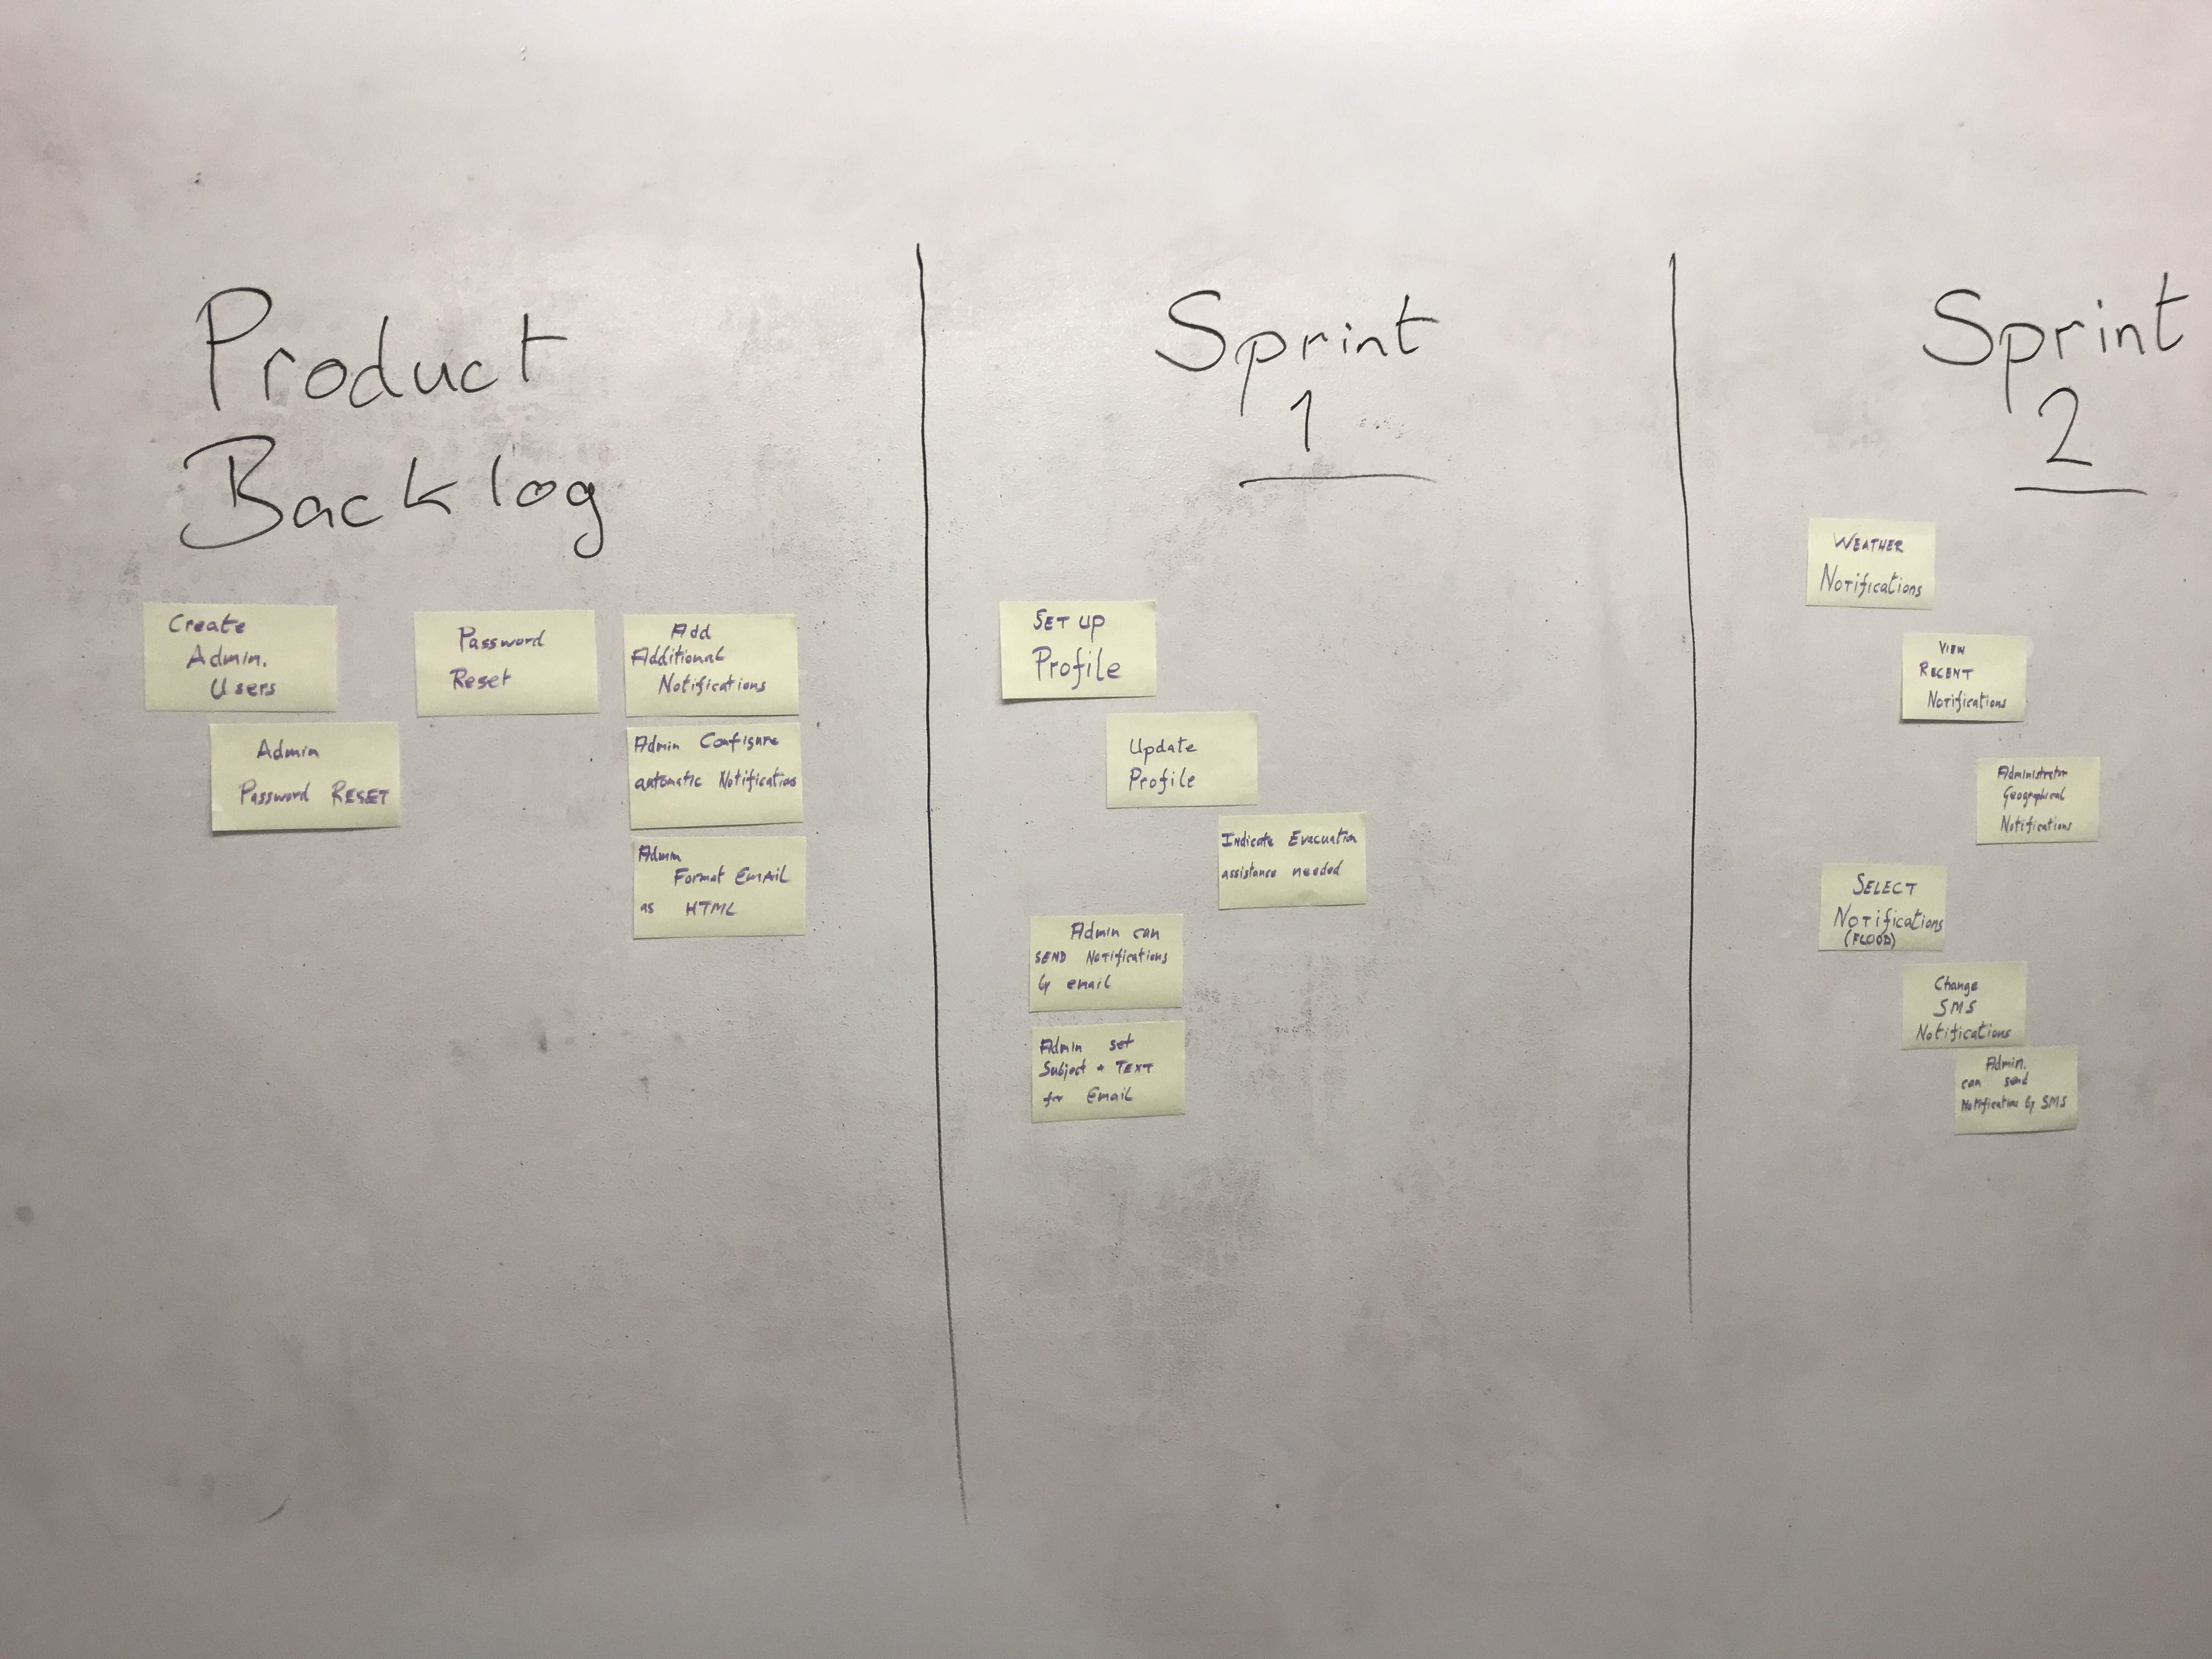 Product
Backlog
Create
Admin.
Users
Admin
Password RESET
Password
Reset
Add
Additional
Notifications
Admin Configure
automatic Notifications
Admin
Format EMAIL
as HTML
Sprint
1
SET UP
Profile
Update
Profile
Indicate Evacuation
assistance needed
Admin can
SEND Notifications
by email
Admin set
Subject + TEXT
for Email
Sprint
2
WEATHER
Notifications
VIEW
RECENT
Notifications
Administrator
Geographical
Notifications
SELECT
Notifications
(FLOOD)
Change
SMS
Notifications
Admin.
can send
Notifications by SMS